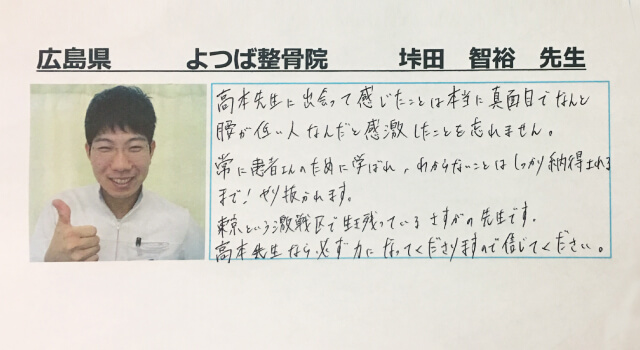 広島県 よつば整骨院 垰田 智裕 先生
高本先生に出会って感じたことは本当に真面目でなんと
腰が低い人なんだと感激したことを忘れません。
常に患者さんのために学ばれ、わからないことはしっかり納得されるまで!やり抜かれます。
東京という激戦区で生き残っているさすがの先生です。
高本先生なら必ず力になってくださりますので信じてください。